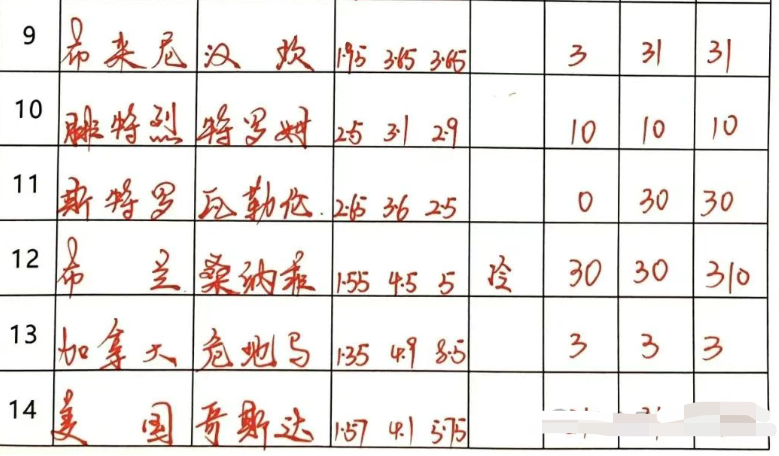 9 布宋尼 汉坎 1.95 3.65 3.65 3 31 31
10 腓特烈 特罗姆 2.5 3.1 2.9 10 10 10
11 斯特罗 瓦勒伦 2.65 3.6 2.5 0 30 30
12 布兰 桑纳菲 1.55 4.5 5 冷 30 30 310
13 加拿大 危地马 1.35 4.9 8.5 3 3 3
14 美国 哥斯达 1.57 4.1 5.75